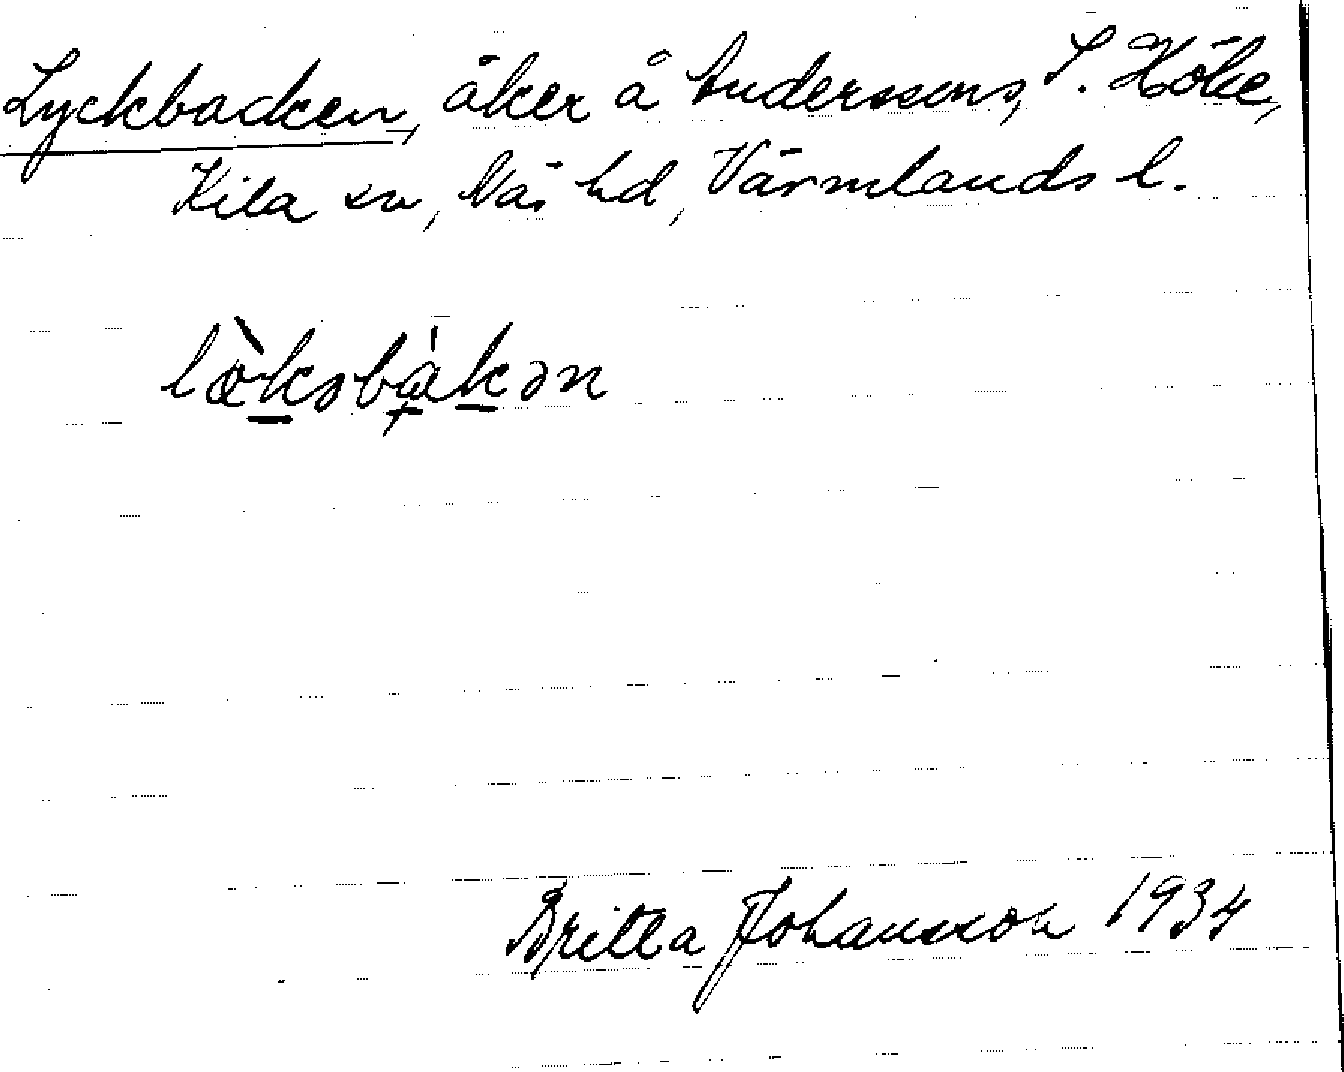 Lyckbacken, åker å Anderssons, S. Höke,
Kila sn, Näs hd, Värmlands l.
lö̀kəbàkən
Britta Johansson 1934